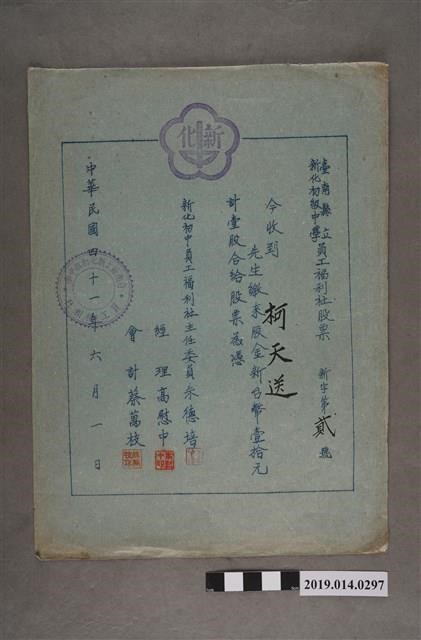 新化
臺南縣立
新化初級中學
員工福利社股票
新字第貳號
今收到
柯天送
先生繳來股金新台幣壹拾元
計壹股合給股票為憑
新化初中員工福利社主任委員朱德培
經理高慰中
會計蔡萬枝
中華民國四十一年六月一日
2019.014.0297